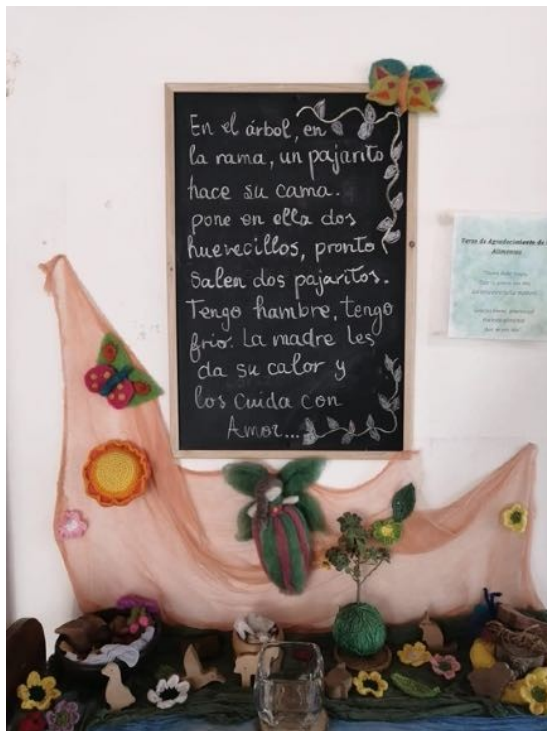 En el árbol, en
la rama, un pajarito
hace su cama.
pone en ella dos
huevecillos, pronto
Salen dos pajaritos.
Tengo hambre, tengo
frío. La madre les
da su calor y
los cuida con
Amor...
Verso de Agradecimiento de
Alimentos